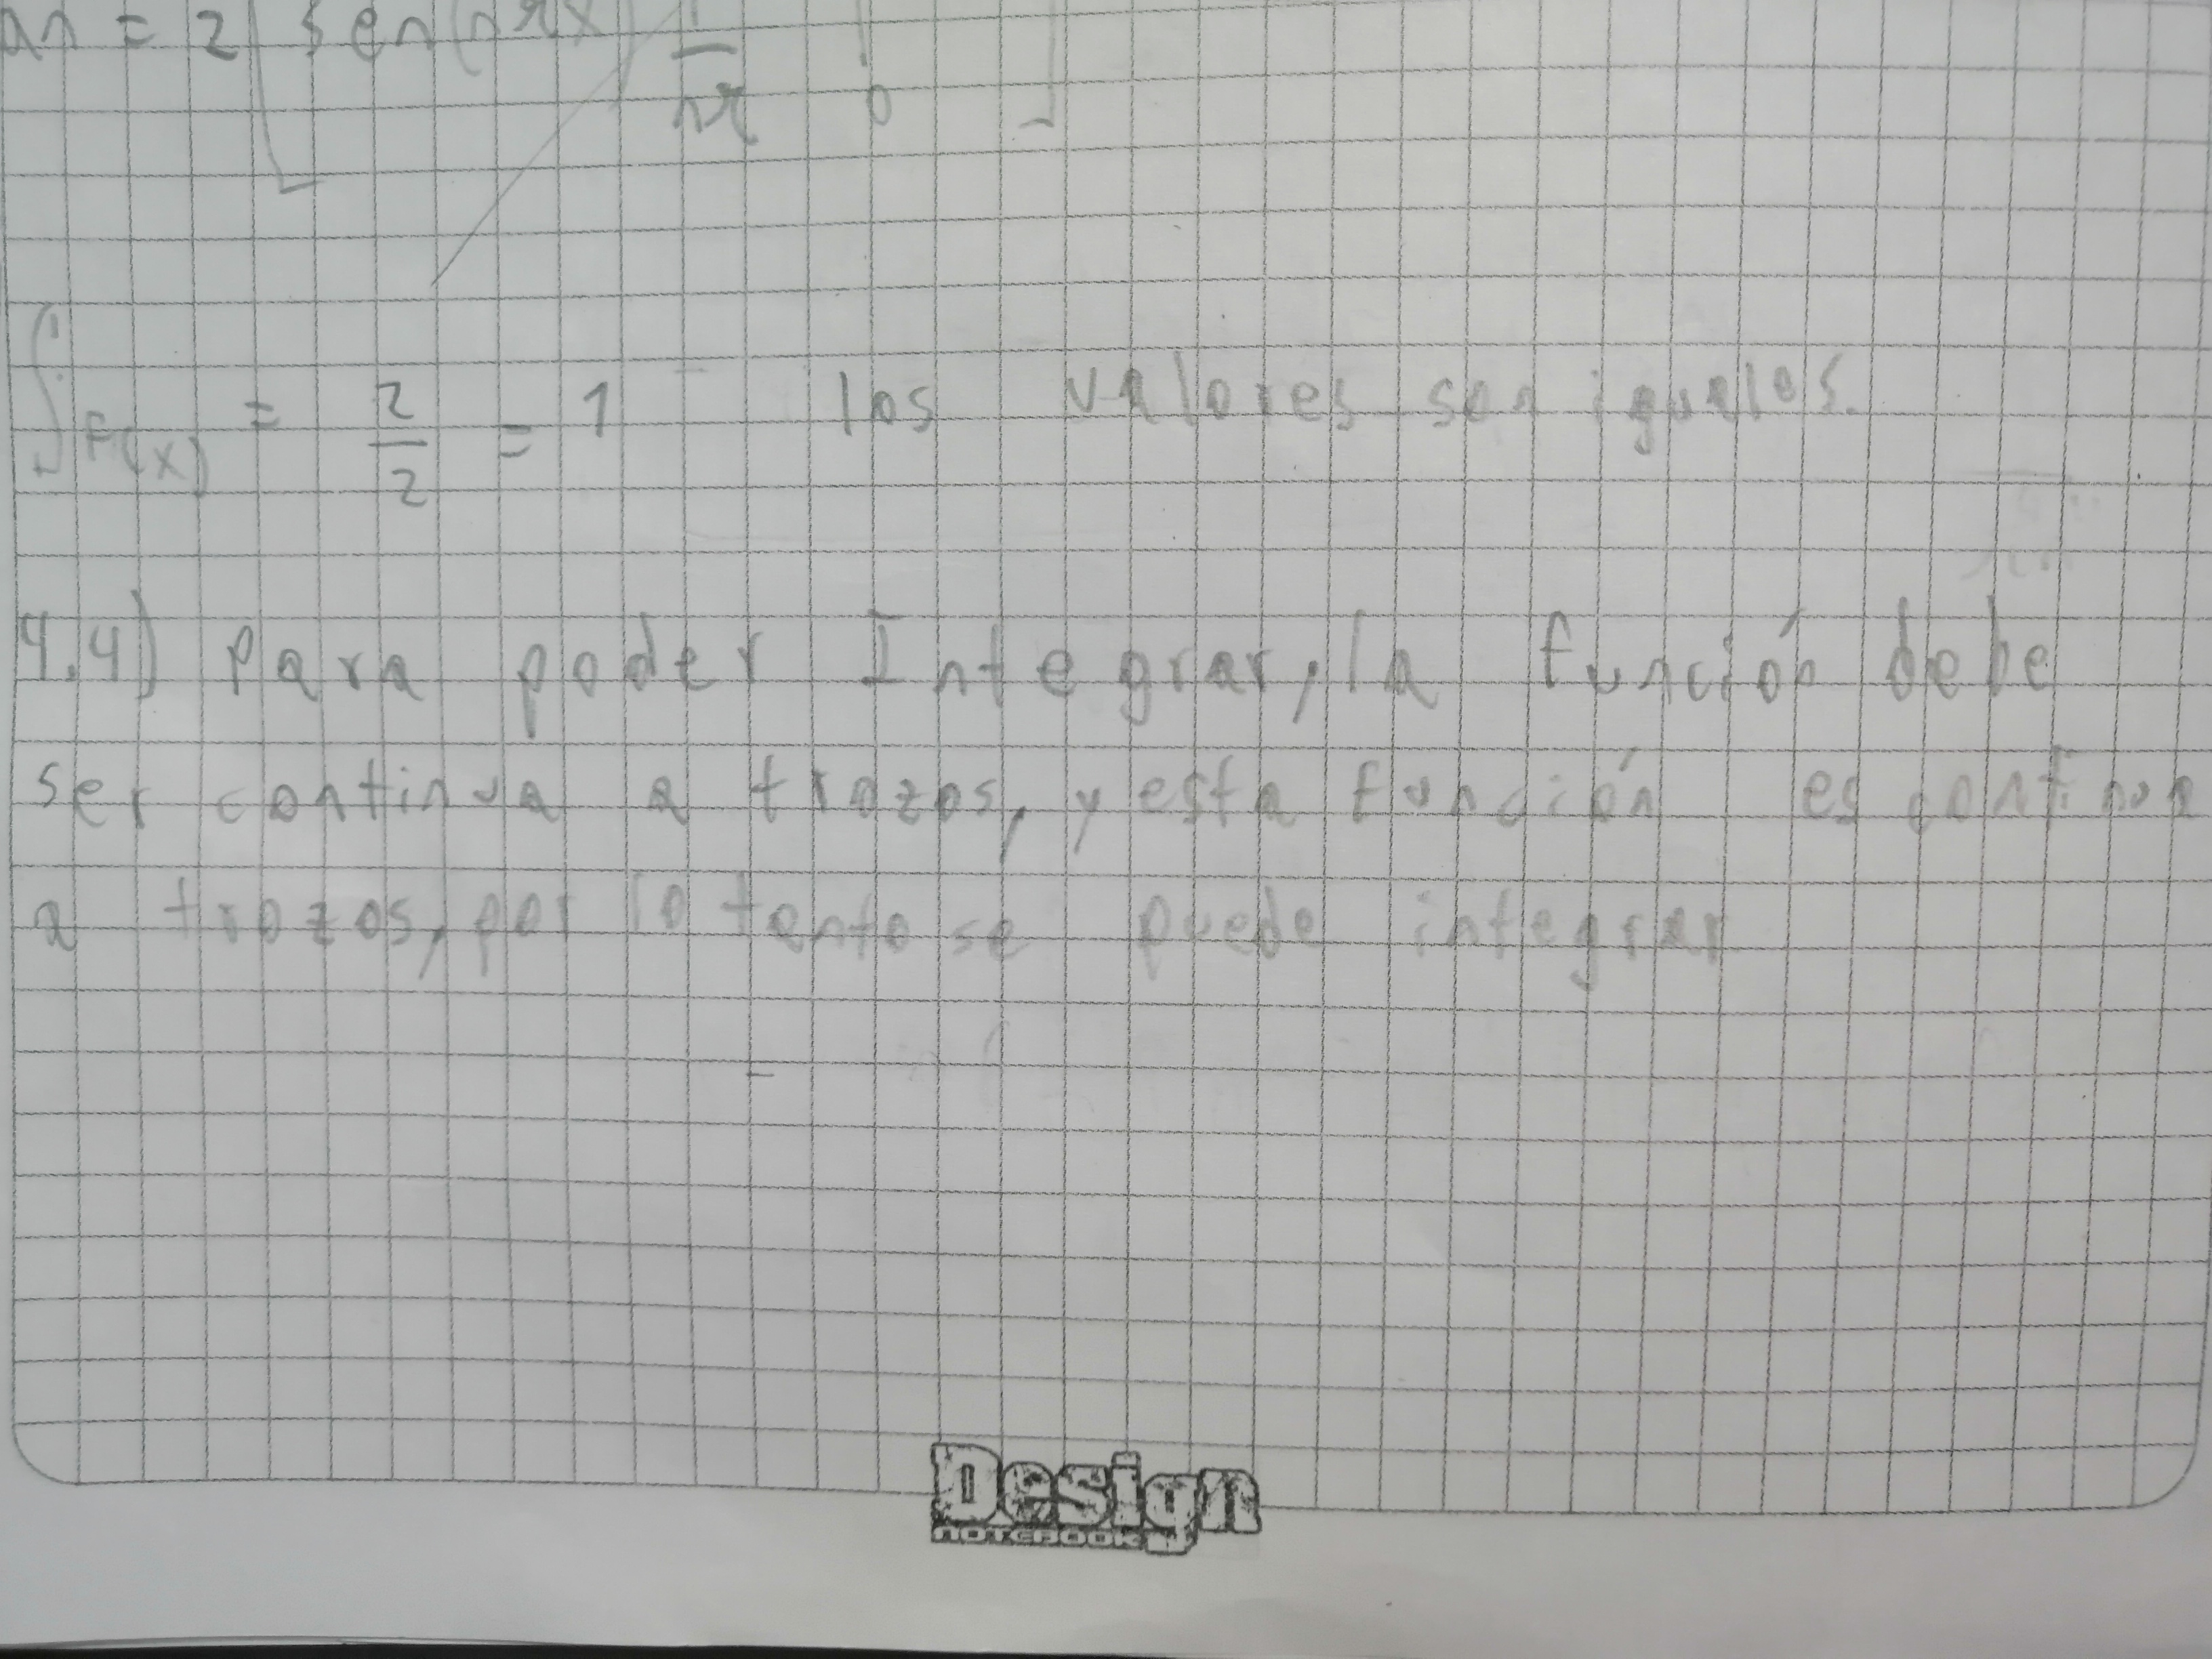 an = 2 [ sen(nπx) 1/nπ | 0 ]
∫ F(x) = 2/2 = 1 los valores son iguales.
4.4) Para poder Integrar, la función debe
ser continua a trozos, y esta función es continua
a trozos, por lo tanto se puede integrar
Design
NOTEBOOK